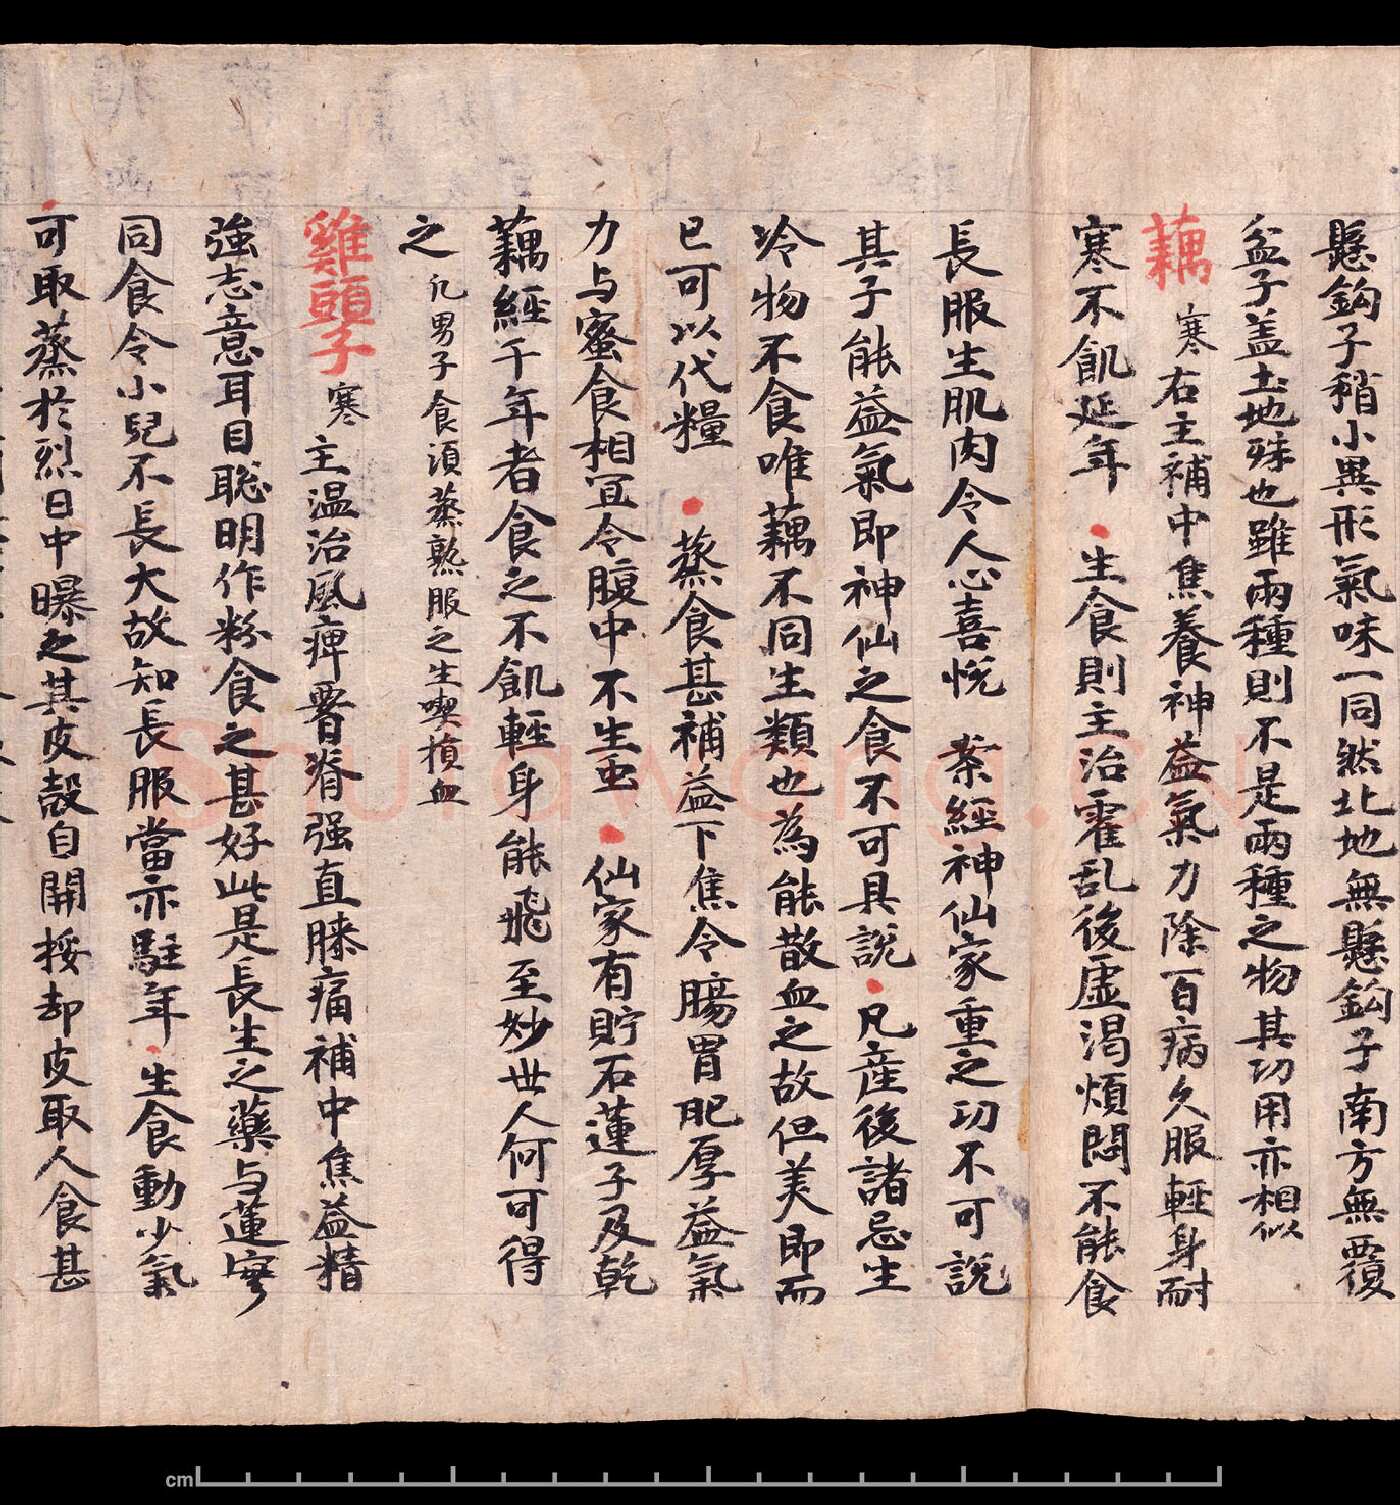 懸鈎子稍小異形氣味一同然北地無懸鈎子南方無覆
盆子盖土地殊也雖兩種則不是兩種之物其功用亦相似
藕 寒 右主補中焦養神益氣力除百病久服輕身耐
寒不飢延年 生食則主治霍乱後虛渴煩悶不能食
長服生肌肉令人心喜悅 案經神仙家重之功不可說
其子能益氣即神仙之食不可具說 凡産後諸忌生
冷物不食唯藕不同生類也為能散血之故但美即而
已可以代糧 蒸食甚補益下焦令腸胃肥厚益氣
力与蜜食相宜令腹中不生虫 仙家有貯石蓮子及乾
藕經千年者食之不飢輕身能飛至妙世人何可得
之 凡男子食須蒸熟服之生喫損血
雞頭子 寒 主温治風痺𦝫脊强直膝痛補中焦益精
強志意耳目聡明作粉食之甚好此是長生之藥与蓮實
同食令小兒不長大故知長服當亦駐年 生食動少氣
可取蒸於烈日中曝之其皮殼自開挼却皮取人食甚